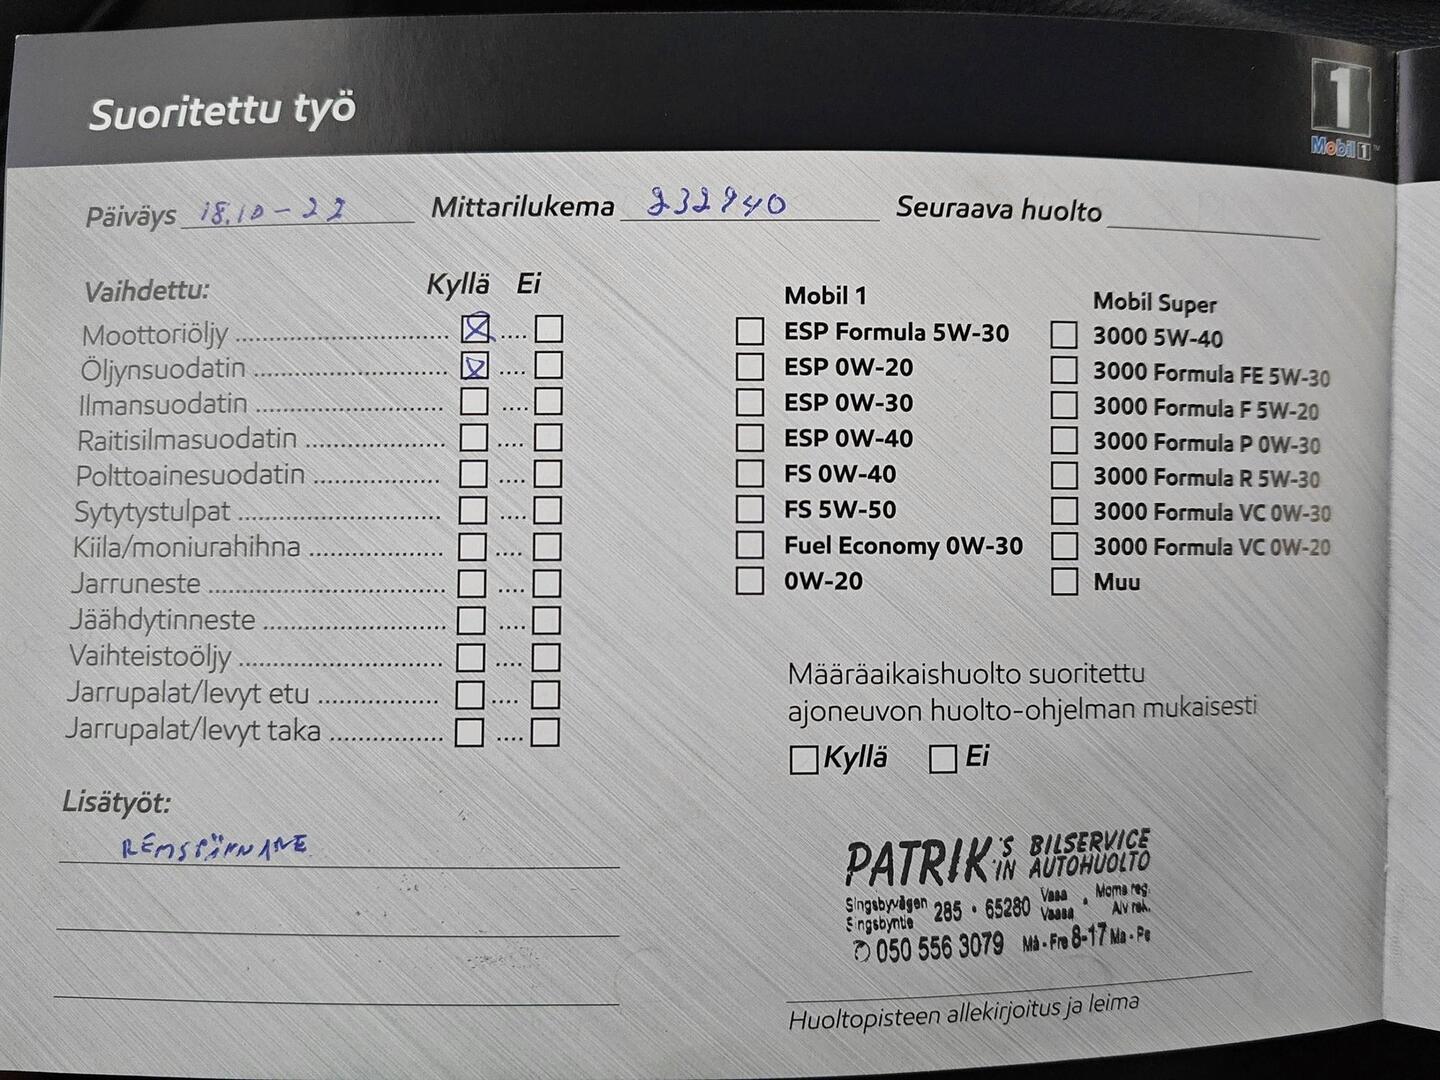 Suoritettu työ
1
Mobil 1™
Päiväys 18.10-22 Mittarilukema 232940 Seuraava huolto
Vaihdettu: Kyllä Ei
Moottoriöljy
Öljynsuodatin
Ilmansuodatin
Raitisilmasuodatin
Polttoainesuodatin
Sytytystulpat
Kiila/moniurahihna
Jarruneste
Jäähdytinneste
Vaihteistoöljy
Jarrupalat/levyt etu
Jarrupalat/levyt taka
Mobil 1
ESP Formula 5W-30
ESP 0W-20
ESP 0W-30
ESP 0W-40
FS 0W-40
FS 5W-50
Fuel Economy 0W-30
0W-20
Mobil Super
3000 5W-40
3000 Formula FE 5W-30
3000 Formula F 5W-20
3000 Formula P 0W-30
3000 Formula R 5W-30
3000 Formula VC 0W-30
3000 Formula VC 0W-20
Muu
Määräaikaishuolto suoritettu
ajoneuvon huolto-ohjelman mukaisesti
Kyllä Ei
Lisätyöt:
REMSPÄNNARE
PATRIK'S BILSERVICE
'IN AUTOHUOLTO
Singsbyvägen 285 · 65280 Vasa · Moms reg.
Singsbyntie Vaasa Alv rek.
✆ 050 556 3079 Må-Fre 8-17 Ma-Pe
Huoltopisteen allekirjoitus ja leima